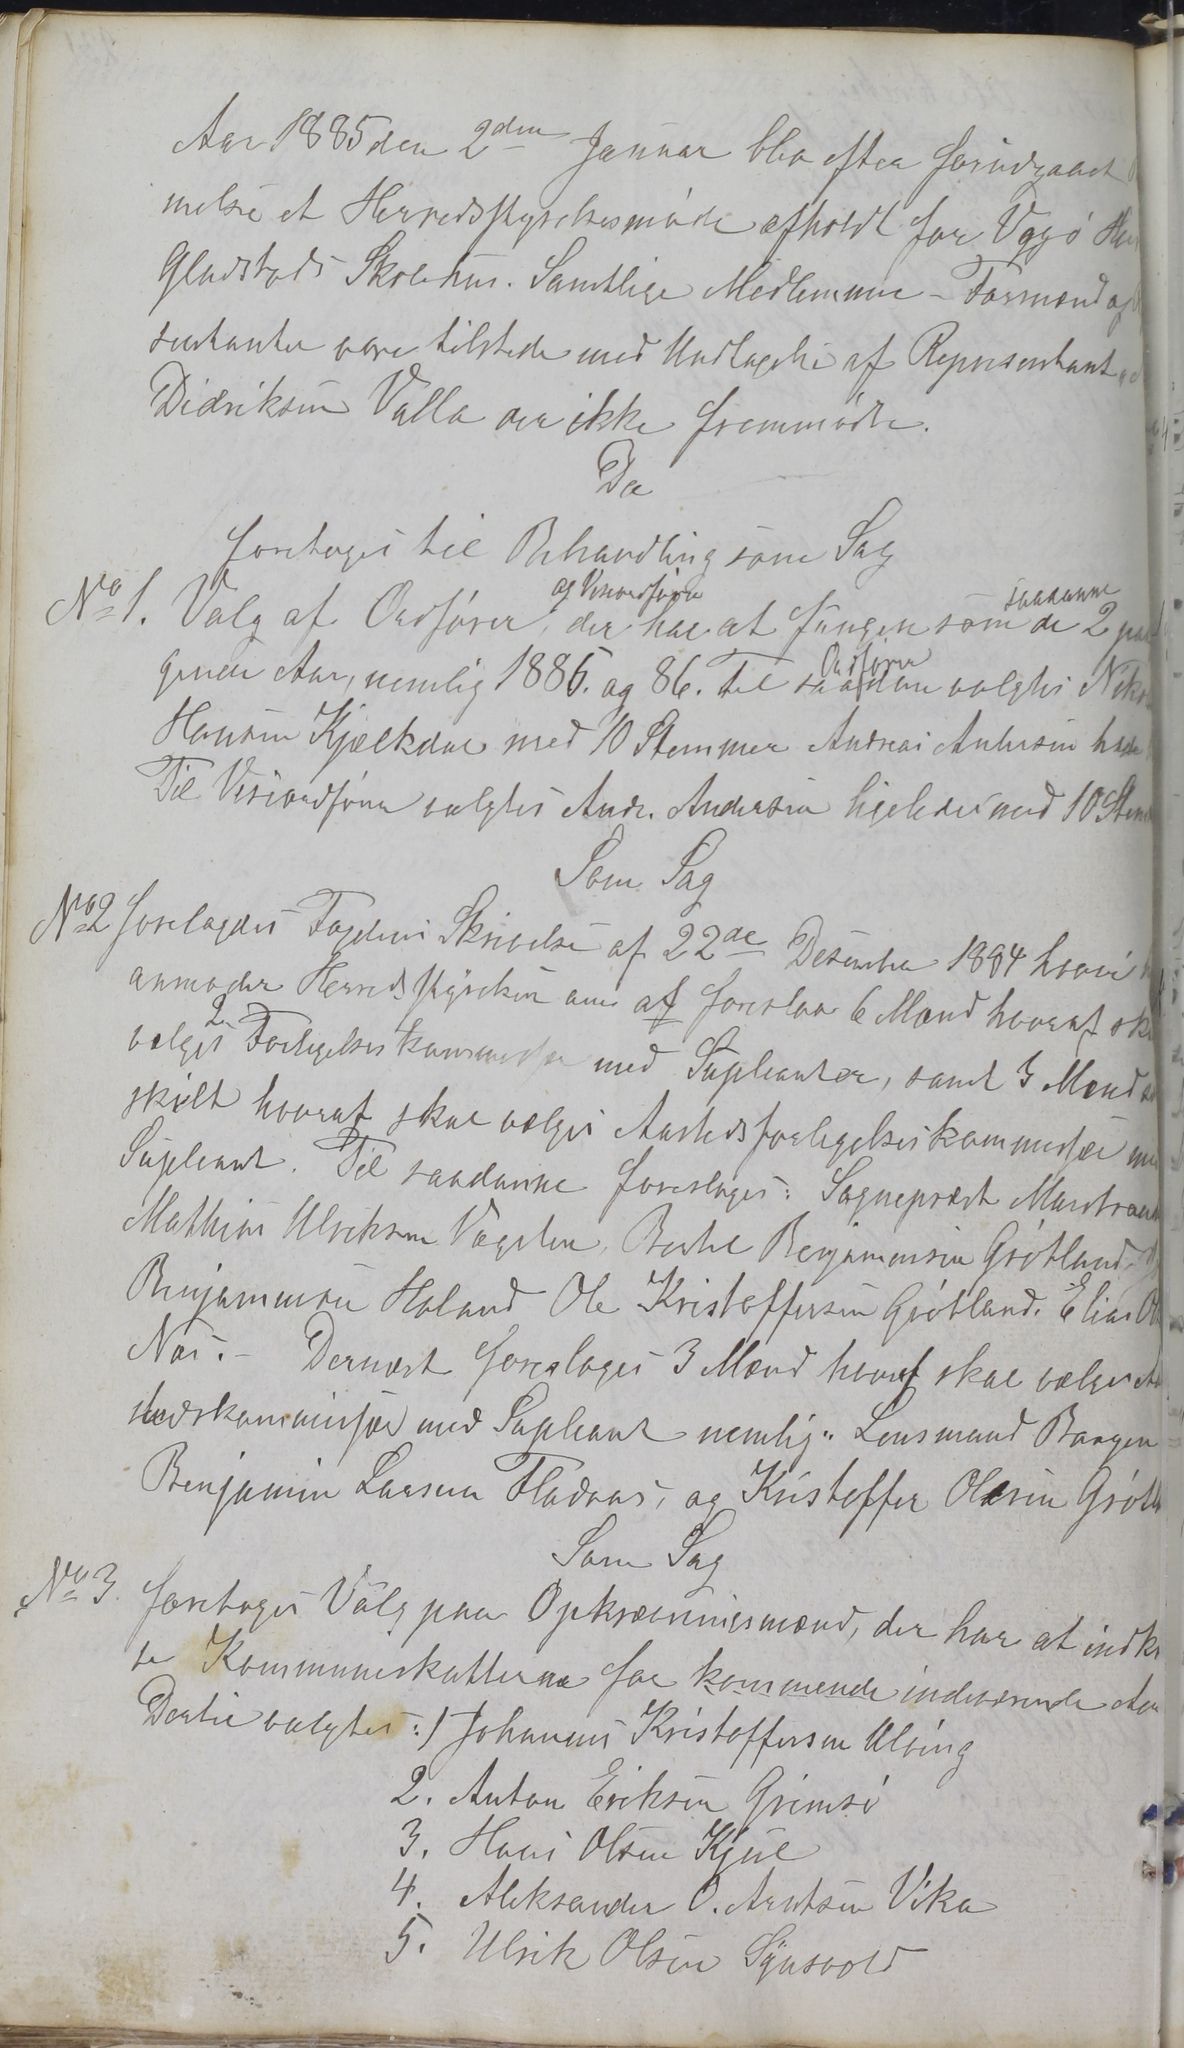 Aar 1885 den 2den Januar blev efter forudgaaet
melse et Herredsstyrelsesmøde afholdt for Vægø Her
Gladstads Skolehus. Samtlige Medlemmer - Formænd og
sentanter vare tilstede med Undtagelse af Representant
Didriksen Valla der ikke fremmødte.
Da
foretoges til Behandling som Sag
No 1. Valg af Ordfører og Viseordfører, der har at fungere som saadanne de 2 paa
gende Aar, nemlig 1885. og 86. Til saadan Ordfører valgtes Niko
Hansen Kjælkdal med 10 Stemmer Andreas Andersen havde
Til Viseordfører valgtes Andr. Andersen ligeledes med 10 Stem
Som Sag
No 2 forelagdes Fogdens Skrivelse af 22de Desember 1884 hvori
anmoder Herredsstyrelsen om at foreslaa 6 Mænd hvoraf ska
vælges 2 Forligelseskommissær med Supleanter, samt 3 Mænd
skilt hvoraf skal vælges Aastedsforligelseskommissær me
Supleant. Til saadanne foresloges: Sogneprest Marstrand
Mathias Ulriksen Vægsten, Bertel Benjaminsen Grøtland
Benjaminsen Holand Ole Kristoffersen Grøtland. Elias Ol
Næs. - Dernæst foresloges 3 Mænd hvoraf skal vælges Aa
stedskommissær med Supleant nemlig: Lensmand Bangen
Benjamin Larsen Fladaas, og Kristoffer Olesen Grøtl
Som Sag
No 3. foretoges Valg paa Opkrævningsmænd, der har at indkr
ve Kommuneskatterne for kommende indeværende Aar
Dertil valgtes: 1 Johannes Kristoffersen Ulving
2. Anton Eriksen Grimsø
3. Hans Olsen Kjul
4. Aleksander O. Arntsen Vika
5. Ulrik Olsen Sÿnsvold